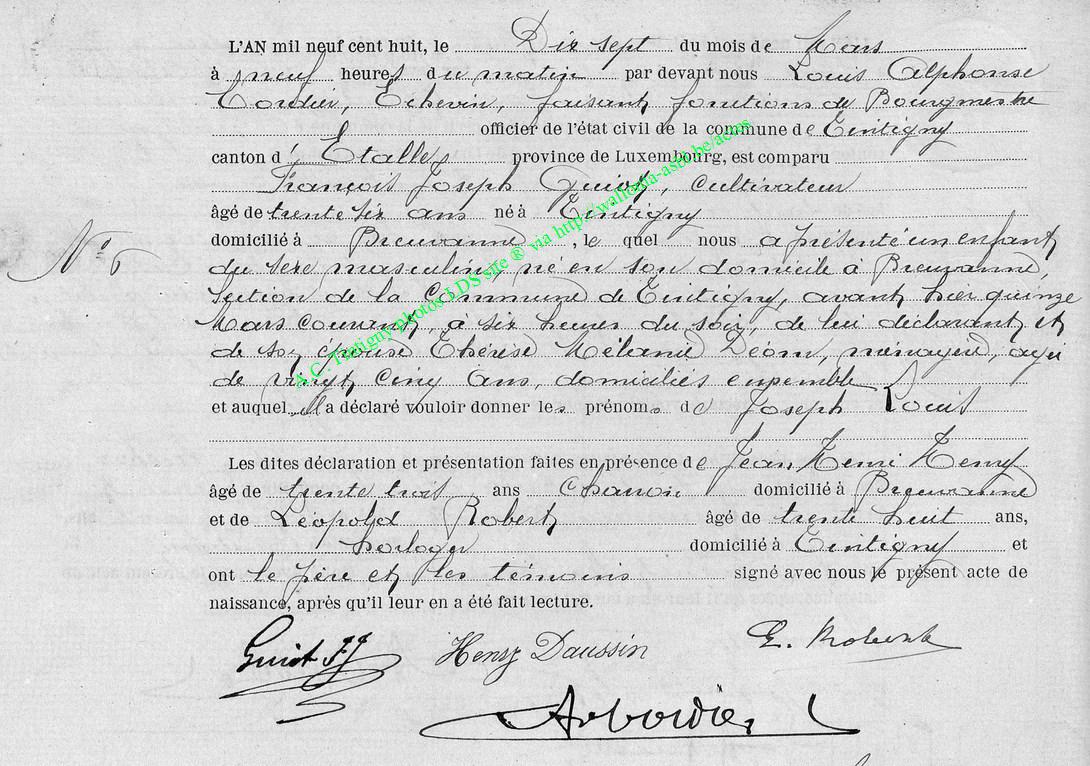 L'AN mil neuf cent huit, le Dix sept du mois de Mars
à neuf heures du matin par devant nous Louis Alphonse
Cordier, Echevin, faisant fonctions de Bourgmestre
officier de l'état civil de la commune de Tintigny
canton d' Etalle province de Luxembourg, est comparu
François Joseph Guiot, cultivateur
âgé de trente six ans né à Tintigny
domicilié à Breuvanne, le quel nous a présenté un enfant
N° 6
du sexe masculin, né en son domicile à Breuvanne,
Section de la Commune de Tintigny, avant hier quinze
Mars courant, à six heures du soir, de lui déclarant et
de son épouse Thérèse Mélanie Déom, ménagère, agée
de vingt cinq ans, domiciliés ensemble
et auquel il a déclaré vouloir donner les prénoms de Joseph Louis
Les dites déclaration et présentation faites en présence de Jean Henri Henry
âgé de trente trois ans charron domicilié à Breuvanne
et de Léopold Robert âgé de trente huit ans,
horloger domicilié à Tintigny et
ont le père et les témoins signé avec nous le présent acte de
naissance, après qu'il leur en a été fait lecture.
Guiot FJ Henry Daussin L. Robert
A.C. Tintigny photos LDS site ® via http://wallonia-asbl.be/actes